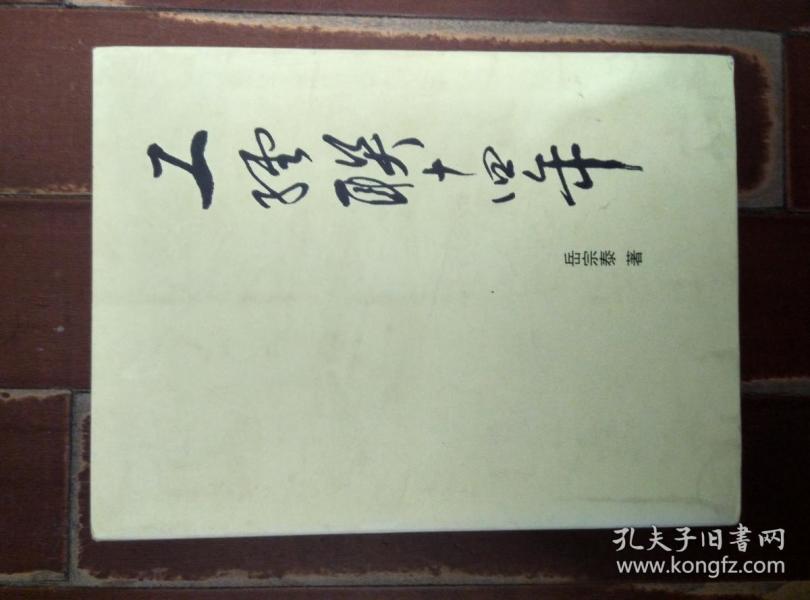 工经联十四年
岳宗泰 著
孔夫子旧書网
www.kongfz.com